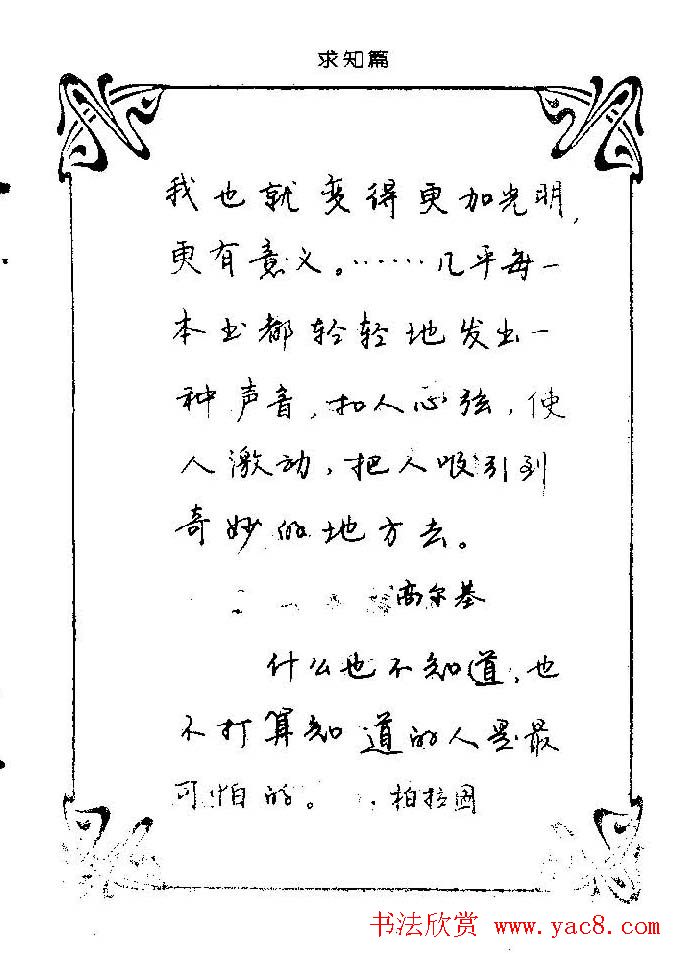 求知篇
我也就变得更加光明，
更有意义。……几乎每一
本书都轻轻地发出一
种声音，扣人心弦，使
人激动，把人吸引到
奇妙的地方去。
高尔基
什么也不知道，也
不打算知道的人是最
可怕的。柏拉图
书法欣赏 www.yac8.com